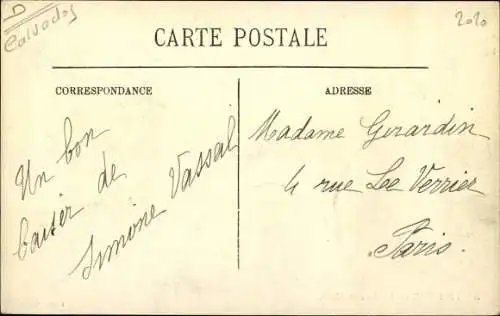 D
Calvados
2020
CARTE POSTALE
CORRESPONDANCE
ADRESSE
Un bon
baiser de
Simone Vassal
Madame Girardin
4 rue Lee Verrier
Paris.